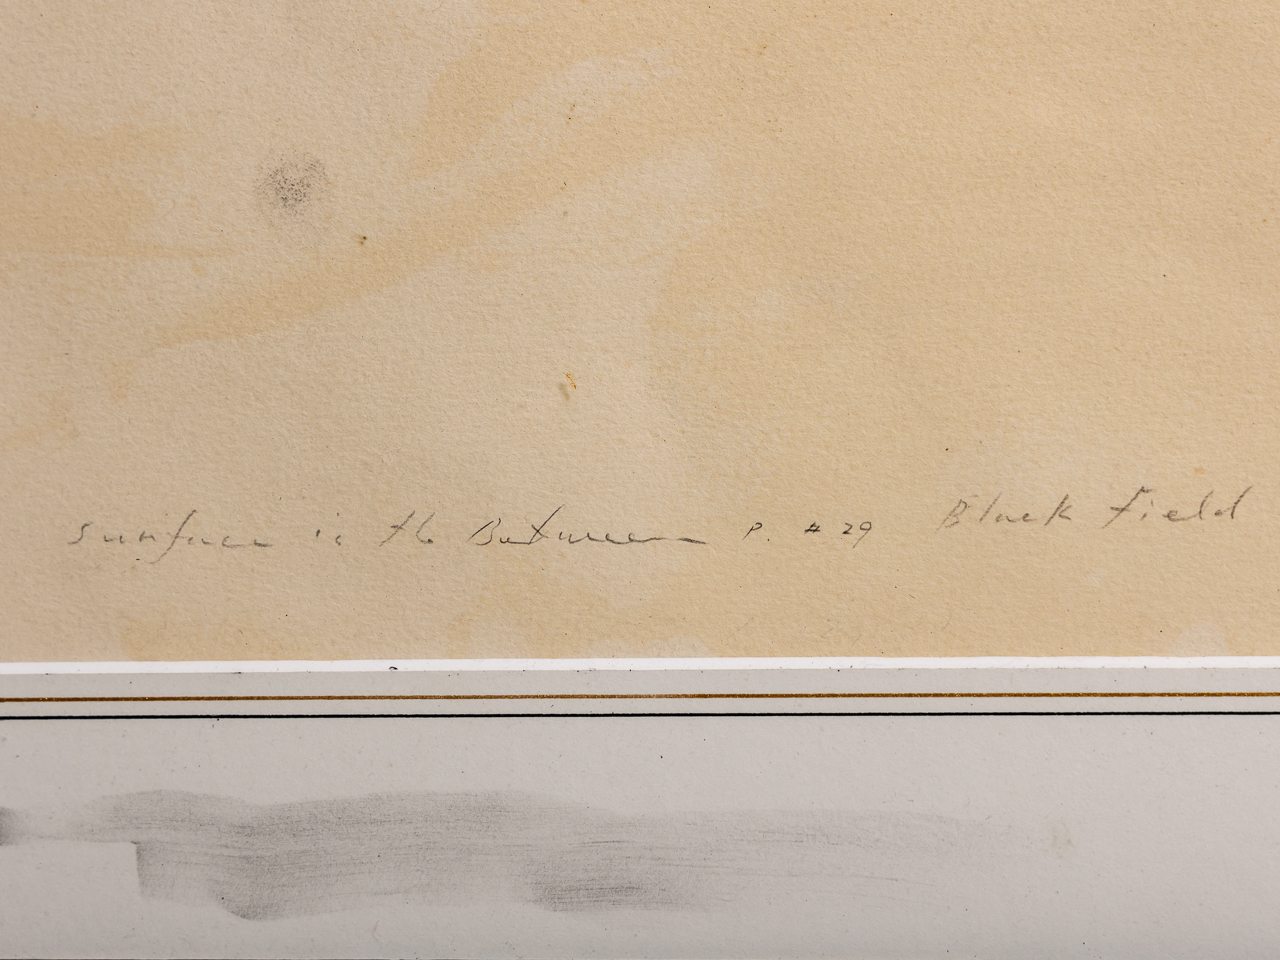 Surface is the Between P. #29 Black Field